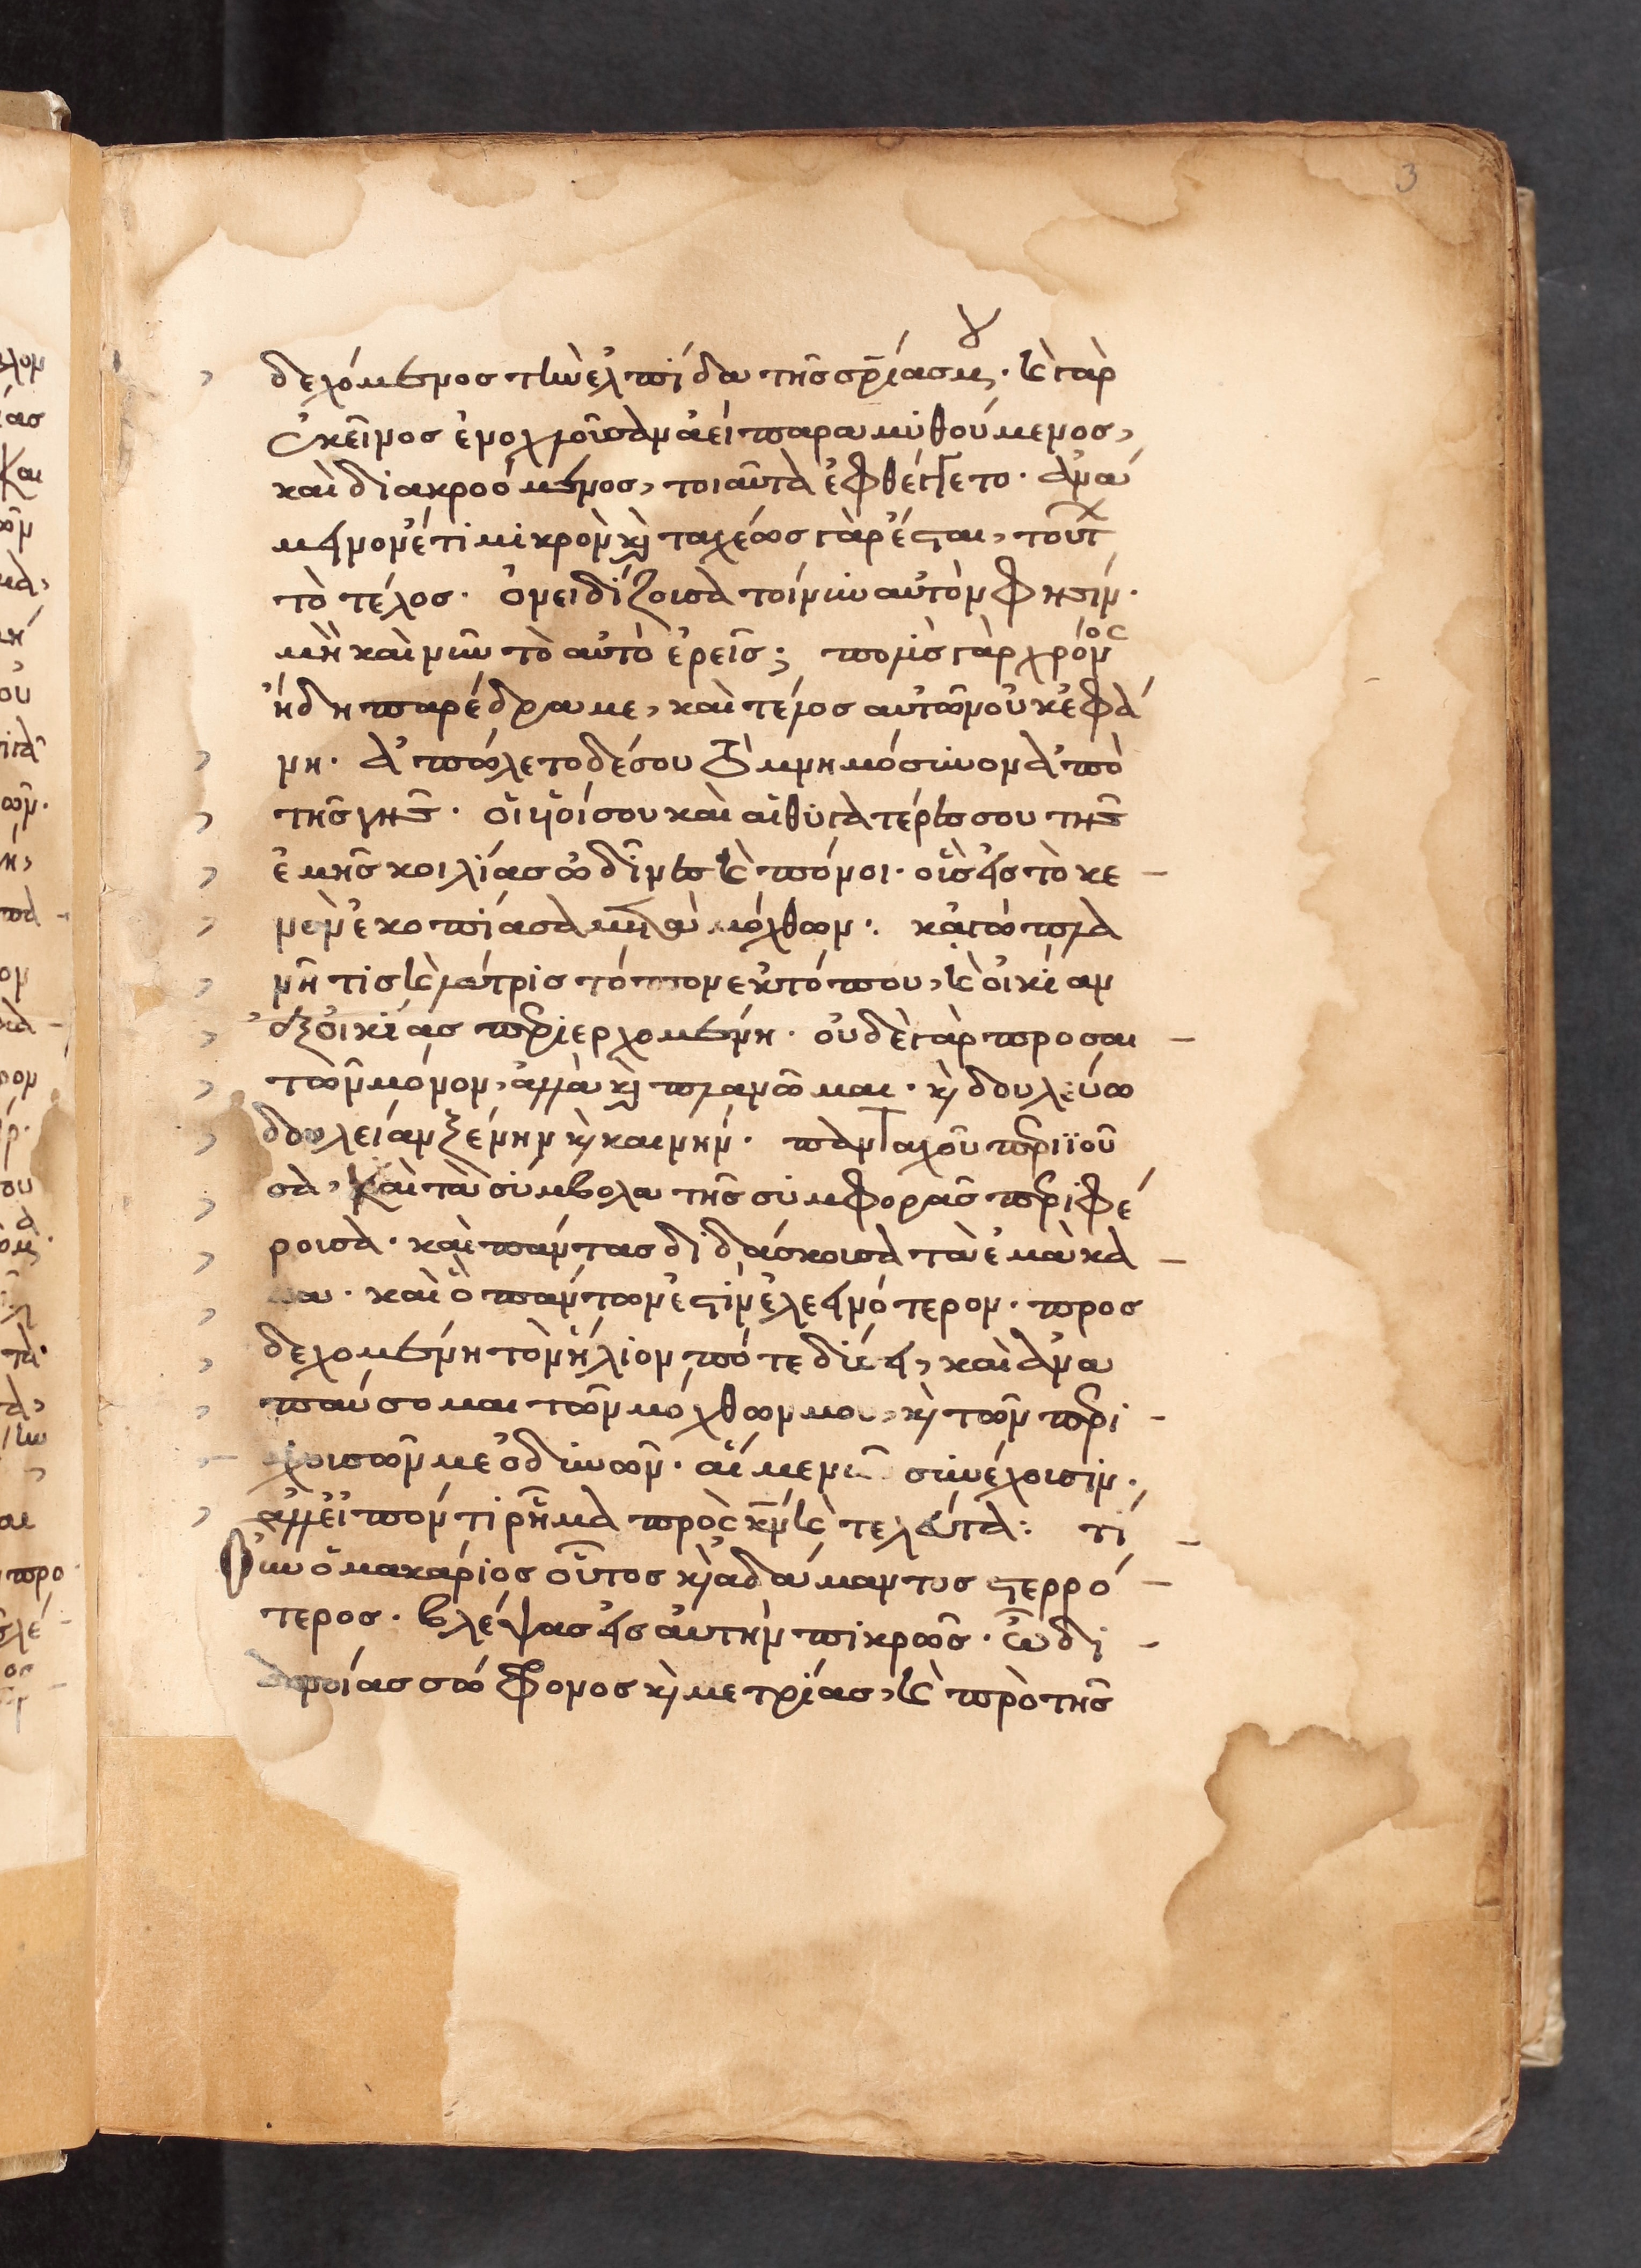 3
δεχόμενος τὴν ἐλπίδα τῆς σρίας μου· καὶ γὰρ
ἐκεῖνος ἐνοχλοῦσαν ἀεὶ παραμυθούμενος,
καὶ διακροόμενος, τοιαῦτα ἐφθέγγετο· ἀνά
μεινον ἔτι μικρὸν κὴ ταχέως γὰρ ἔσται, τούτ
τὸ τέλος· ὀνειδίζουσα τοίνυν αὐτὸν φησίν·
μὴ καὶ νῦν τὸ αὐτὸ ἐρεῖς; πολὺς γὰρ χρόνος
ἤδη παρέδραμε, καὶ τέλος αὐτῶν οὐκ ἐφά
νη· ἀπώλετο δέ σου τὸ μνημόσυνον ἀπὸ
τῆς γῆς· οἱ υἱοί σου καὶ αἱ θυγατέρες σου τῆς
ἐμῆς κοιλίας ὠδῖνες καὶ πόνοι· οἷς εἰς τὸ κε
νὸν ἐκοπίασα μετὰ μόχθων· κἀγὼ πλα
νῆτις καὶ λάτρις τόπον ἐκ τόπου, καὶ οἰκίαν
ἐξ οἰκίας περιερχομένη· οὐδὲ γὰρ προσαι
τῶν μόνον, ἀλλὰ κὴ πλανῶμαι· κὴ δουλεύω
δουλείαν ξένην κὴ καινήν· πανταχοῦ περιϊοῦ
σα, καὶ τὰ σύμβολα τῆς συμφορᾶς περιφέ
ρουσα· καὶ πάντας διδάσκουσα τὰ ἐμὰ κα
κα· καὶ ὃ πάντων ἐστὶν ἐλεεινότερον· προς
δεχομένη τὸν ἥλιον πότε δύσει, καὶ ἀνα
παύσομαι τῶν μόχθων μου, κὴ τῶν περι
εχουσῶν με ὀδυνῶν· αἵ με νῦν συνέχουσιν·
ἀλλ' εἰπόν τι ῥῆμα πρὸς κν καὶ τελεύτα: τί
οὖν ὁ μακάριος οὗτος κὴ ἀδάμαντος στερρό
τερος· βλέψας εἰς αὐτὴν πικρῶς· ὢ δι
ανοίας σώφονος κὴ μετρίας, καὶ πρὸ τῆς